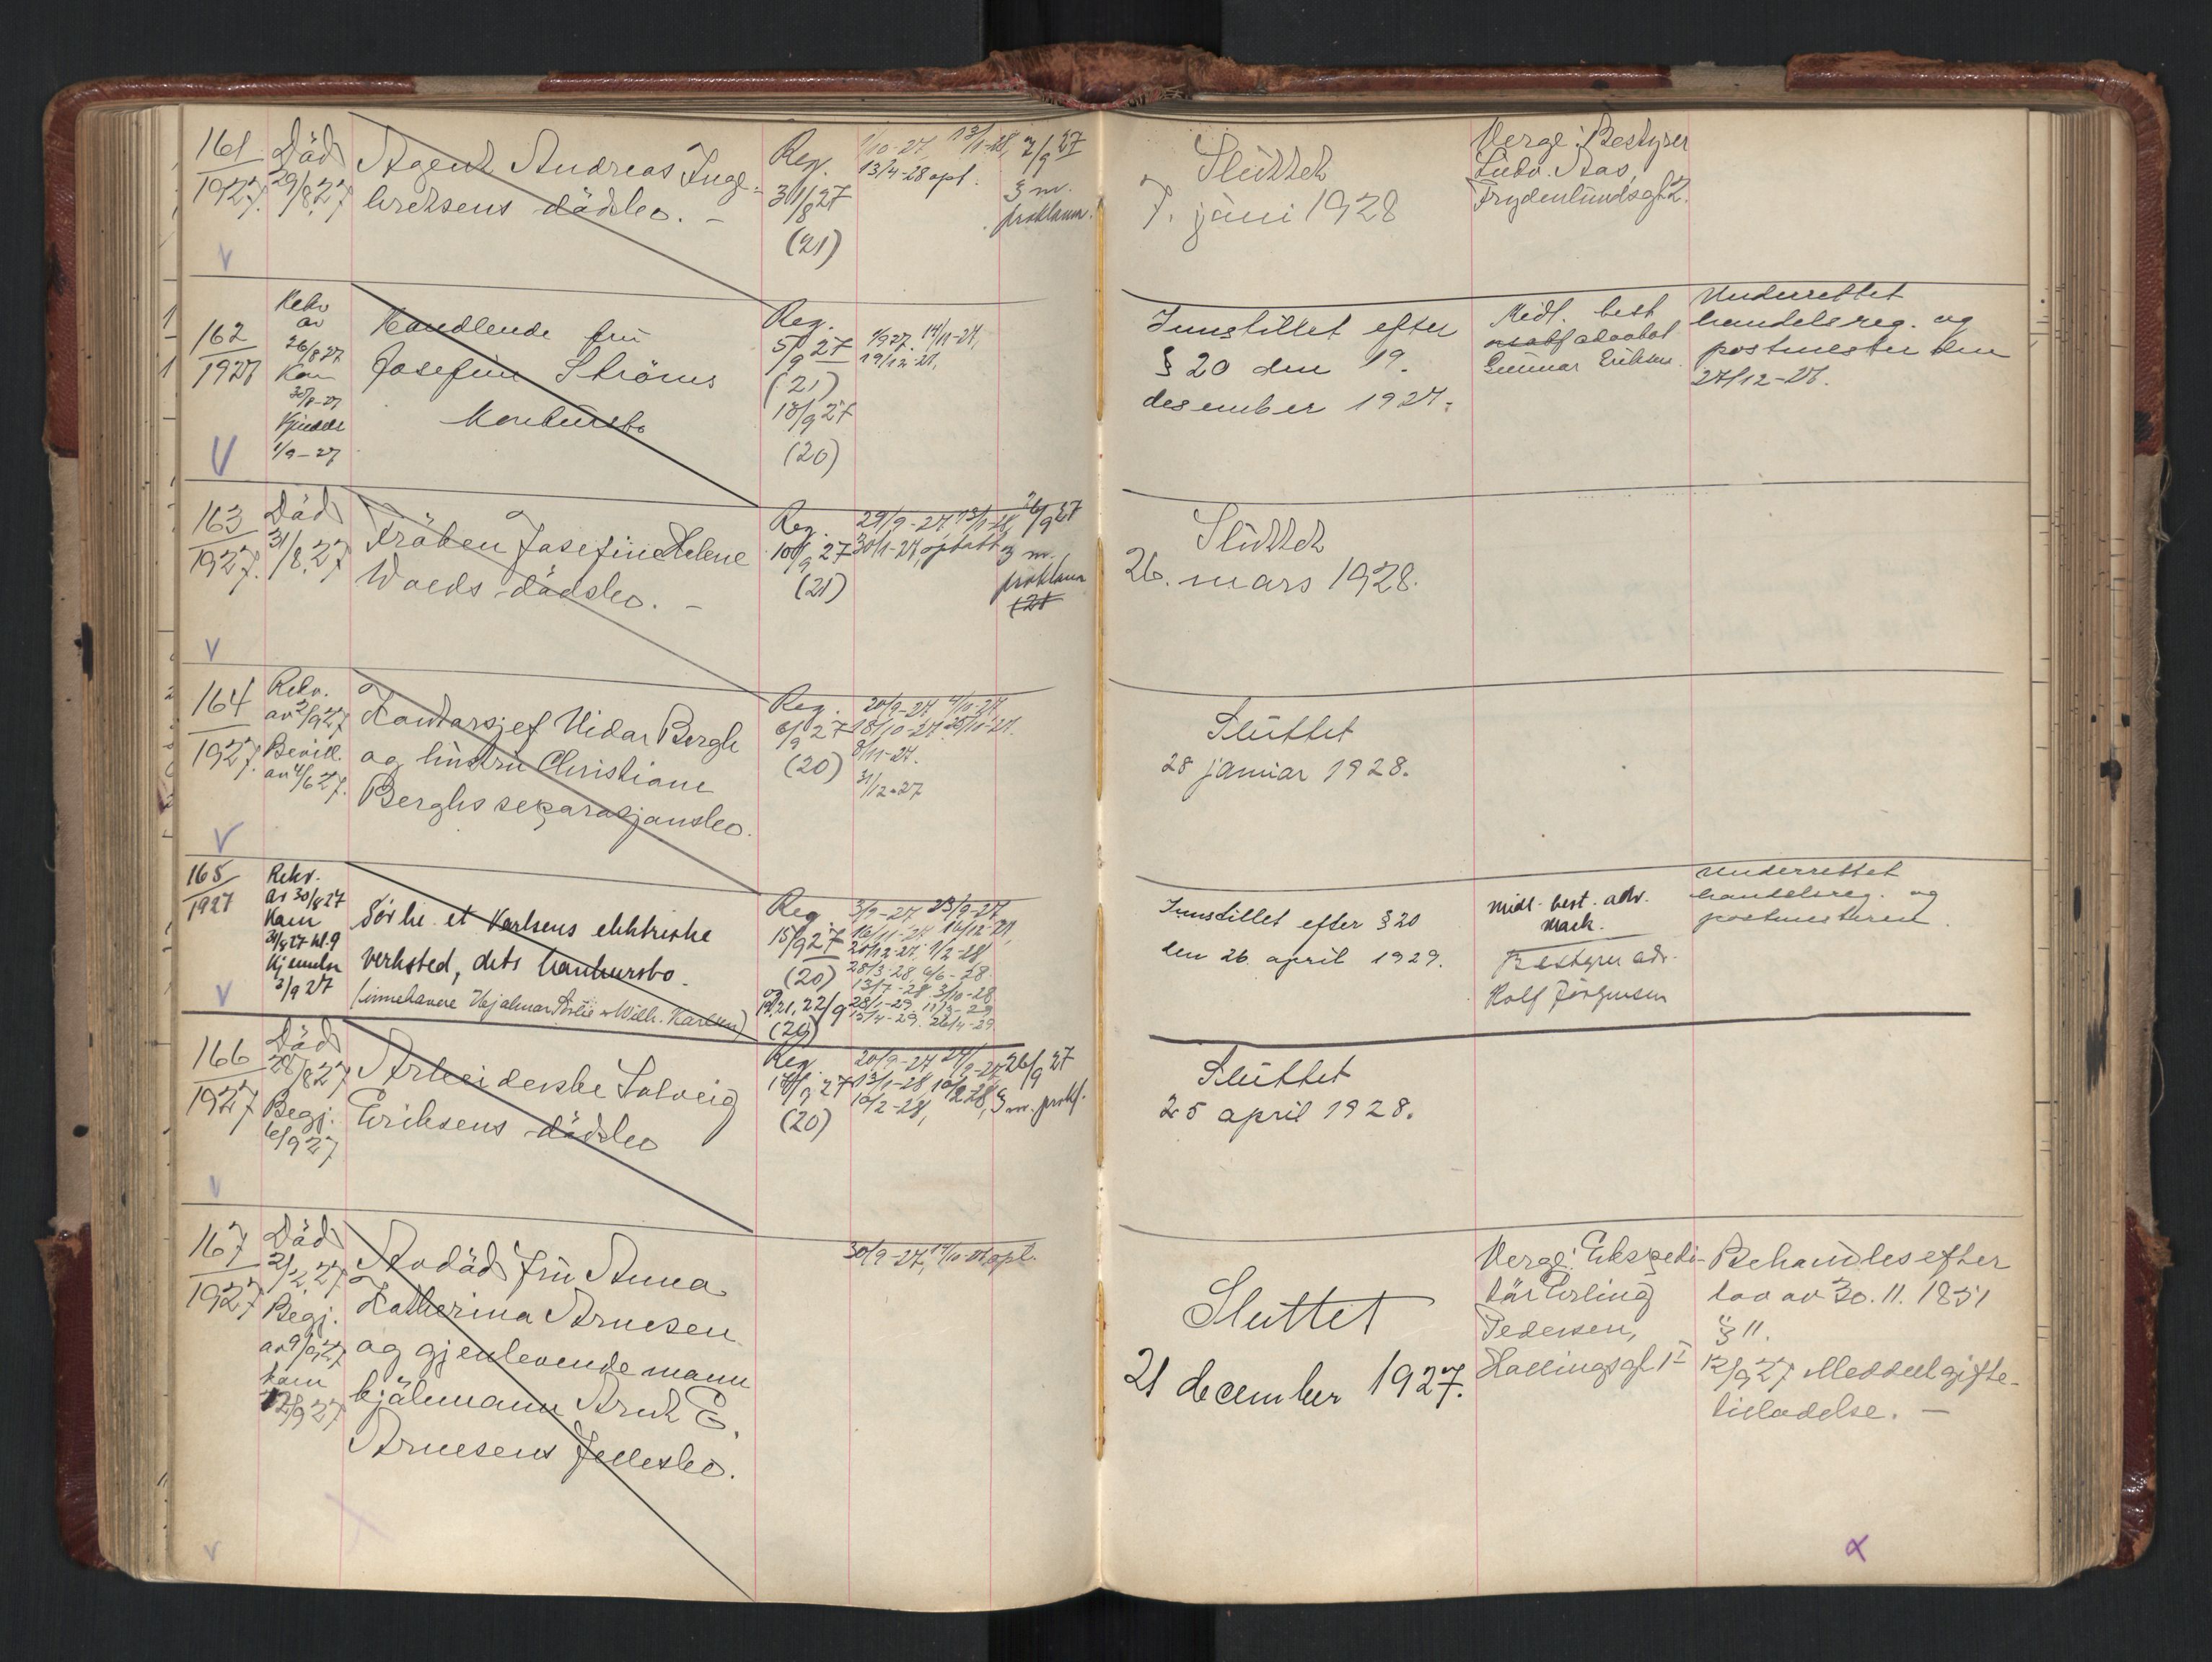 161
1927.
Död
29/8.27
Agent Andreas Inge-
bretsens dödsbo. –
Reg.
31/8 27
(21)
1/10-27, 13/1-28,
13/4-28 opt.
2/9 27
3 m.
proklama.
Sluttet
7. juni 1928
Verge: Bestyrer
Ludv. Aas,
Frydenlundsgt. 2.
162
1927
Rekv
av
26/8 27
Kom
30/8-27
Kjendt
1/9-27
Handlende fru
Josefine Ströms
konkursbo
Reg.
5/9 27
(21)
18/9 27
(20)
14/11-27,
19/12-27,
Innstillet efter
§ 20 den 19.
desember 1927.
Midl. best
advokat
Gunnar Eriksen
Underrettet
handelsreg. og
postmesteren
27/12-27.
163
1927.
Död
31/8.27
Fröken Josefine Helene
Wolds dödsbo. –
Reg.
10/9 27
(21)
29/9-27, 13/1-28,
30/1-28, opsatt
26/9 27
3 m.
proklama
(21
Sluttet
26. mars 1928.
164
1927.
Rekv.
av 2/9 27
Bevill.
av 4/6 27.
Kontorsjef Vidar Bergh
og hustru Christiane
Berghs separasjonsbo.
Reg.
6/9 27
(20)
20/9-27 4/10-27
18/10-27 25/10-27.
8/11-27.
31/12-27
Sluttet
28 januar 1928.
165
1927
Rekv.
av 30/8 27
Kom
31/8 27 kl. 9
Kjennelse
3/9 27
Sörlie et Karlsens elektriske
verksted, dets konkursbo.
(innehavere Hjalmar Sörlie & Wilh. Karlsen)
Reg.
15/9 27
(20)
og
19, 21, 22/9
(20)
3/9-27 23/9-27
16/11-27 16/12-27,
20/12-27. 1/2-28
28/3-28 6/6-28
13/7-28 3/10-28
28/1-29. 11/3-29
15/4-29. 26/4-29
Innstillet efter § 20
den 26. april 1929.
Midl. best. adv.
Mack.
Bestyrer adv.
Rolf Jörgensen
Underrettet
handelsreg. og
postmesteren.
166
1927
Död
28/8 27
Begj.
6/9 27
Arbeiderske Solveig
Eriksens dödsbo
Reg.
17/9 27
(20)
20/9-27 27/9-27
13/1-28, 10/2-28,
10/2-28,
26/9 27
3 m. prokl.
Sluttet
25 april 1928.
167
1927
Död
21/2.27
Begj.
av 9/9 27
kom
12/9 27
Avdöd fru Anna
Katherina Arnesen
og gjenlevende mann
kjölmann Arnt E.
Arnesens fellesbo.
30/9-27, opt.
Sluttet
21 december 1927.
Verge: Ekspedi-
tör Erling
Pedersen,
Hallingsgt. 1 I
Behandles efter
lov av 30.11.1851
§ 11.
12/9 27 Meddelt gifte-
tilladelse. –